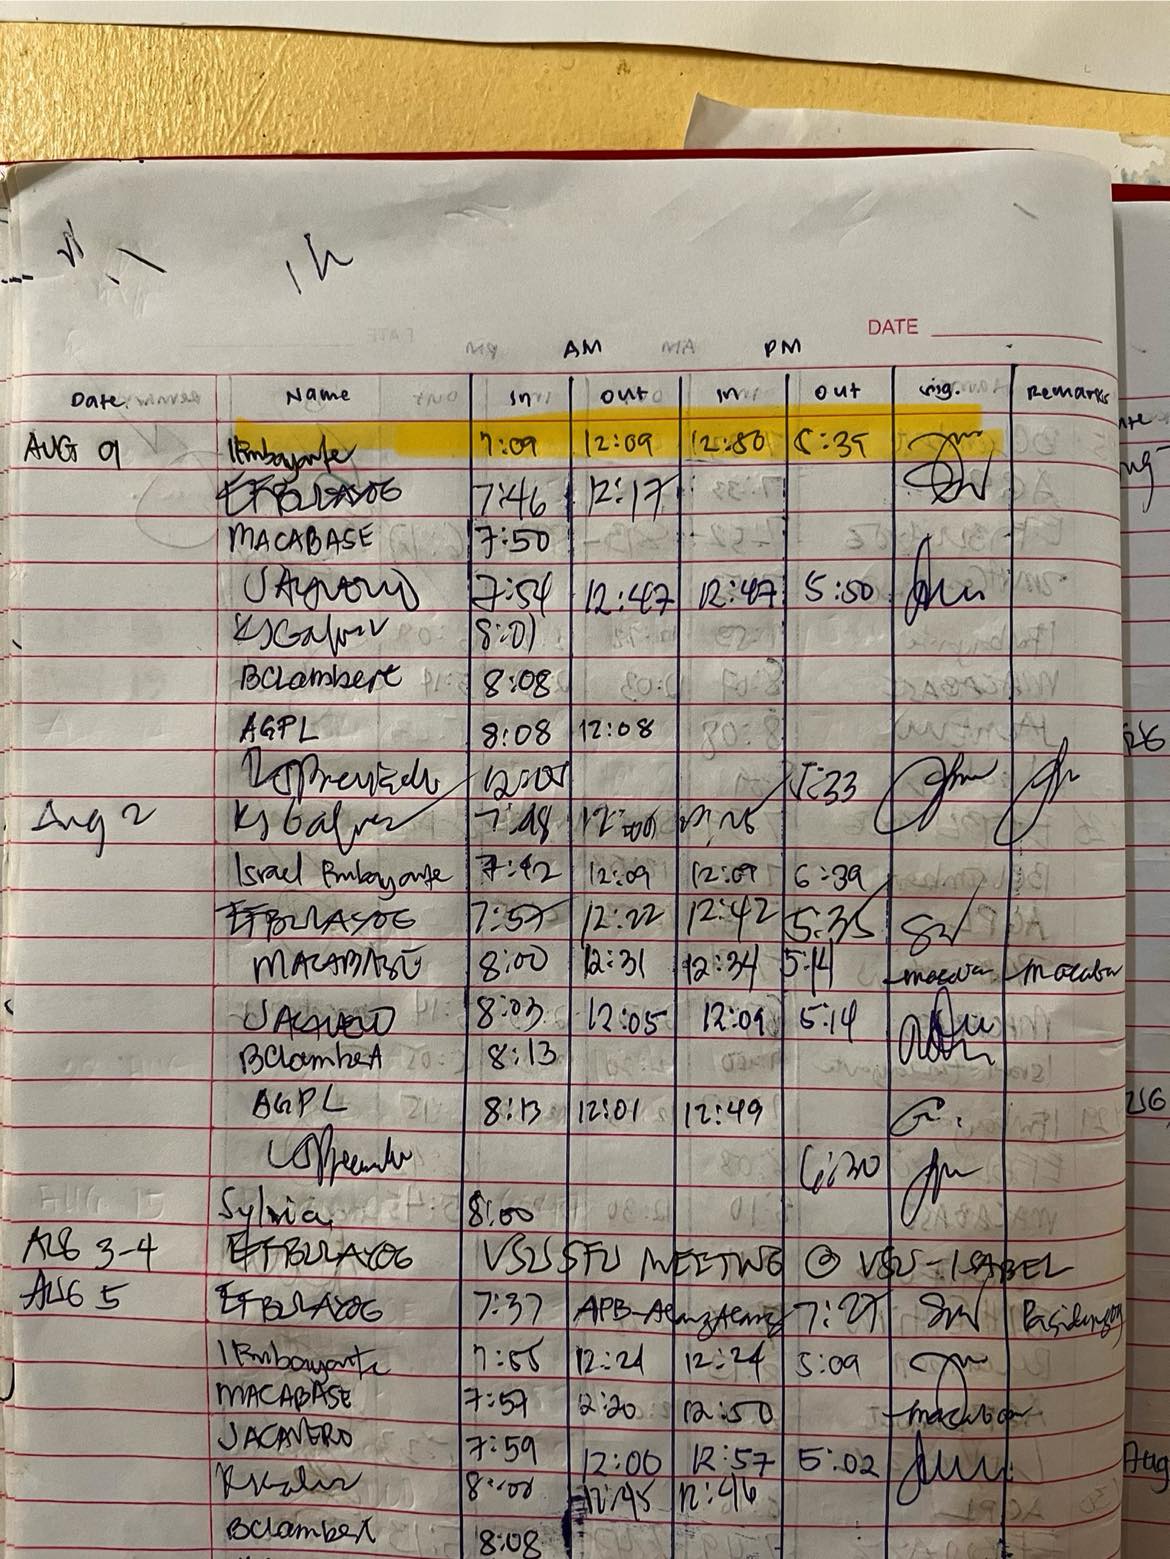 DATE
AM PM
Date Name In Out In Out Sig. Remarks
AUG 01 IEmbayarte 7:09 12:09 12:50 5:35
EFBULAYOG 7:46 12:17
MACABASE 7:50
JACAÑERO 7:54 12:47 12:47 5:50
KJGalvez 8:01
BClambert 8:08
AGPL 8:08 12:08
12:05 5:33
Aug 2 KJ Galvez 7:48
Israel Embayarte 7:42 12:09 12:09 6:39
EFBULAYOG 7:57 12:22 12:42 5:35
MACABASE 8:00 12:31 12:34 5:14
JACAÑERO 8:03 12:05 12:09 5:14
BClambert 8:13
AGPL 8:13 12:01 12:49
6:30
Sylvia 8:00
AUG 3-4 EFBULAYOG VSU SFU MEETING @ VSU - ISABEL
AUG 5 EFBULAYOG 7:37 7:27
IEmbayarte 7:55 12:24 12:24 5:09
MACABASE 7:57 12:20 12:50
JACAÑERO 7:59 12:06 12:57 5:02
8:00 12:45 12:46
BClambert 8:08